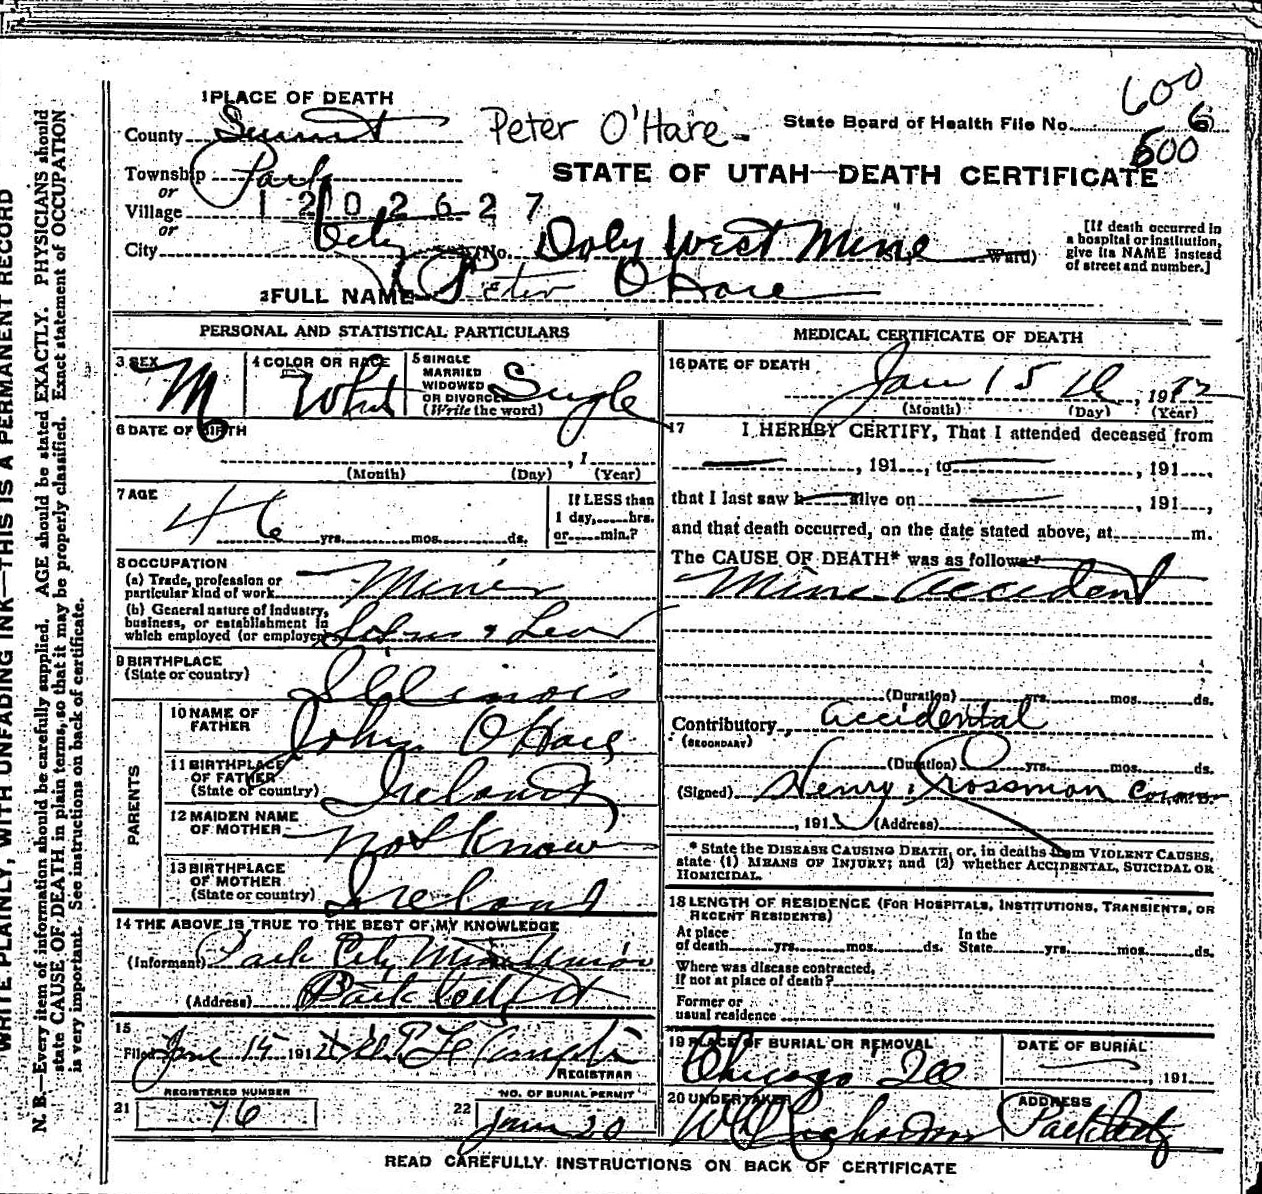 600
1 PLACE OF DEATH
County Summit
Peter O'Hare
State Board of Health File No. 6
500
Township Park
STATE OF UTAH—DEATH CERTIFICATE
or
Village 1202627
or
City City No. Daly West Mine St., Ward)
[If death occurred in a hospital or institution, give its NAME instead of street and number.]
2 FULL NAME Peter O'Hare
PERSONAL AND STATISTICAL PARTICULARS
3 SEX M
4 COLOR OR RACE White
5 SINGLE MARRIED WIDOWED OR DIVORCED (Write the word) Single
6 DATE OF BIRTH
, 1
(Month) (Day) (Year)
7 AGE 46 yrs. mos. ds.
If LESS than 1 day, hrs. or min.?
8 OCCUPATION
(a) Trade, profession or particular kind of work Miner
(b) General nature of industry, business, or establishment in which employed (or employer)
9 BIRTHPLACE
(State or country) Illinois
PARENTS
10 NAME OF FATHER John O'Hare
11 BIRTHPLACE OF FATHER (State or country) Ireland
12 MAIDEN NAME OF MOTHER Not Know
13 BIRTHPLACE OF MOTHER (State or country) Ireland
14 THE ABOVE IS TRUE TO THE BEST OF MY KNOWLEDGE
(Informant) Park City Mine Union
(Address) Park City Ut
15
Filed 15 191
REGISTRAR
REGISTERED NUMBER
21 76
NO. OF BURIAL PERMIT
22 20
MEDICAL CERTIFICATE OF DEATH
16 DATE OF DEATH
Jan 15 , 1912
(Month) (Day) (Year)
17 I HEREBY CERTIFY, That I attended deceased from
, 191 , to , 191 ,
that I last saw h alive on , 191 ,
and that death occurred, on the date stated above, at m.
The CAUSE OF DEATH* was as follows:
Mine accident
(Duration) yrs. mos. ds.
Contributory accidental
(SECONDARY)
(Duration) yrs. mos. ds.
(Signed) Henry Crossman Coroner
, 191 (Address)
* State the DISEASE CAUSING DEATH, or, in deaths from VIOLENT CAUSES, state (1) MEANS OF INJURY; and (2) whether ACCIDENTAL, SUICIDAL OR HOMICIDAL.
18 LENGTH OF RESIDENCE (FOR HOSPITALS, INSTITUTIONS, TRANSIENTS, OR RECENT RESIDENTS)
At place of death yrs. mos. ds. In the State yrs. mos. ds.
Where was disease contracted, if not at place of death?
Former or usual residence
19 PLACE OF BURIAL OR REMOVAL Chicago Ill
DATE OF BURIAL , 191
20 UNDERTAKER Richardson
ADDRESS Park City
READ CAREFULLY INSTRUCTIONS ON BACK OF CERTIFICATE
WRITE PLAINLY, WITH UNFADING INK—THIS IS A PERMANENT RECORD
N. B.—Every item of information should be carefully supplied. AGE should be stated EXACTLY. PHYSICIANS should
state CAUSE OF DEATH in plain terms, so that it may be properly classified. Exact statement of OCCUPATION
is very important. See instructions on back of certificate.